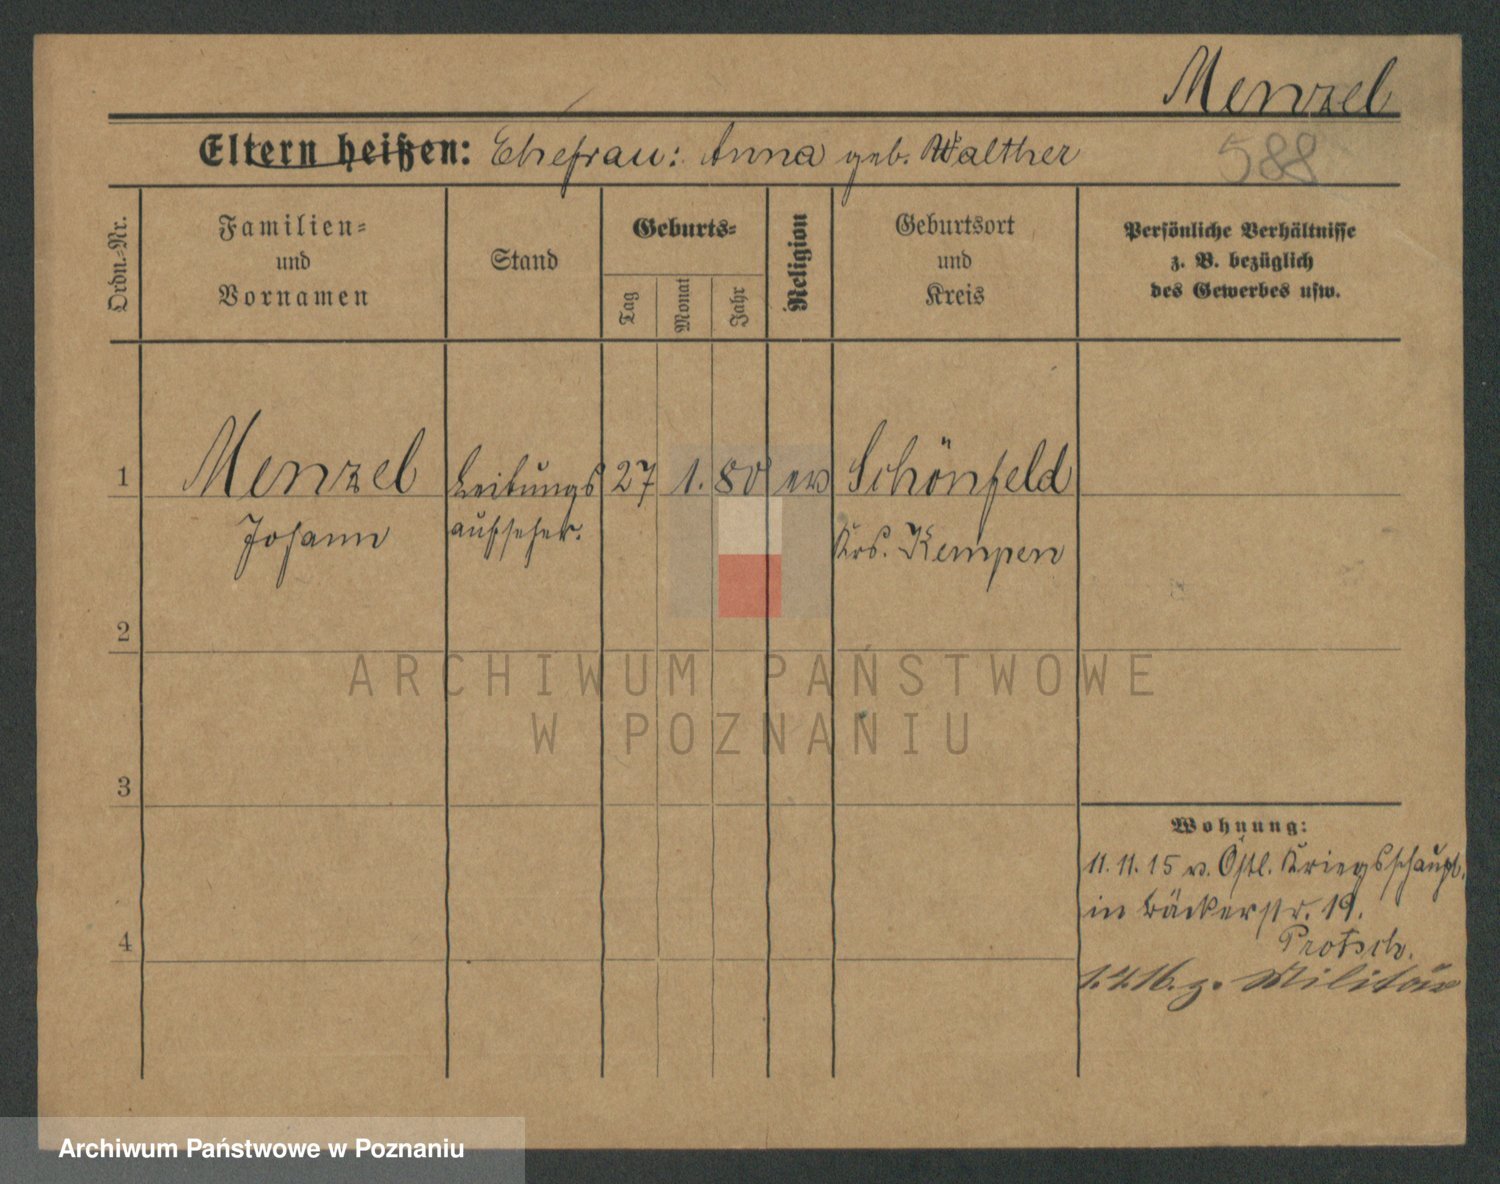 Menzel
Eltern heißen: Ehefrau: Anna geb. Walther
588
Ordn.-Nr.
Familien=
und
Vornamen
Stand
Geburts=
Tag
Monat
Jahr
Religion
Geburtsort
und
Kreis
Persönliche Verhältnisse
z. B. bezüglich
des Gewerbes usw.
1 Menzel Leitungs 27 1. 80 ev Schönfeld
Johann aufseher. Krs. Kempen
2
3
4
Wohnung:
11.11.15 v. Östl. Kriegsschaupl.
in Bäckerstr. 19.
Protsch.
1.4.16. z. Militär
ARCHIWUM PAŃSTWOWE
W POZNANIU
Archiwum Państwowe w Poznaniu